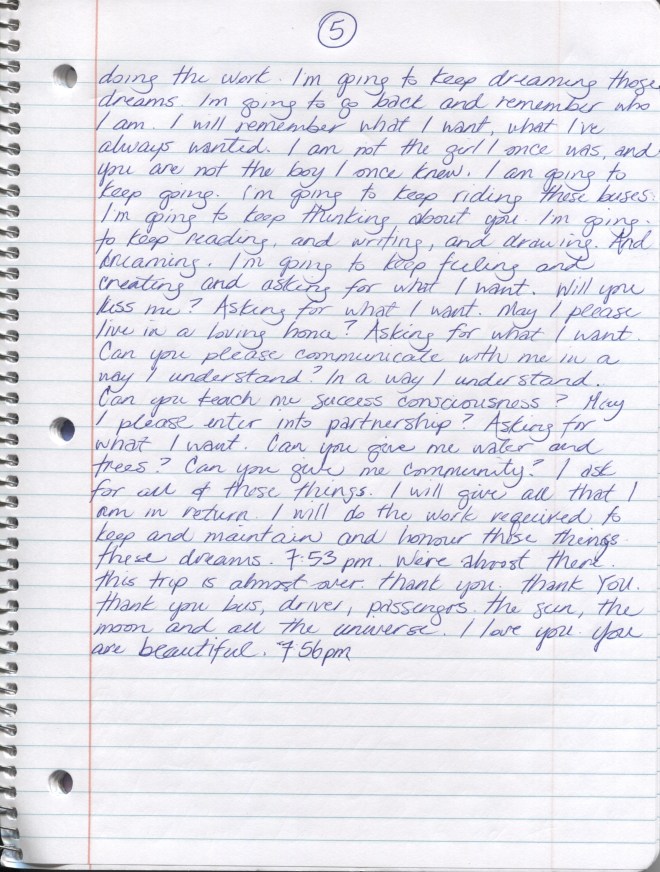 5
doing the work. I'm going to keep dreaming those
dreams. I'm going to go back and remember who
I am. I will remember what I want, what I've
always wanted. I am not the girl I once was, and
you are not the boy I once knew. I am going to
keep going. I'm going to keep riding these buses.
I'm going to keep thinking about you. I'm going.
to keep reading, and writing, and drawing. And
dreaming. I'm going to keep feeling and
creating and asking for what I want. Will you
kiss me? Asking for what I want. May I please
live in a loving home? Asking for what I want.
Can you please communicate with me in a
way I understand? In a way I understand.
Can you teach me success consciousness? May
I please enter into partnership? Asking for
what I want. Can you give me water and
trees? Can you give me community? I ask
for all of these things. I will give all that I
am in return. I will do the work required to
keep and maintain and honour these things.
these dreams. 7:53 pm. We're almost there.
This trip is almost over. Thank you. Thank You.
Thank you bus, driver, passengers. The sun, the
moon and all the universe. I love you. You
are beautiful. 7:56pm